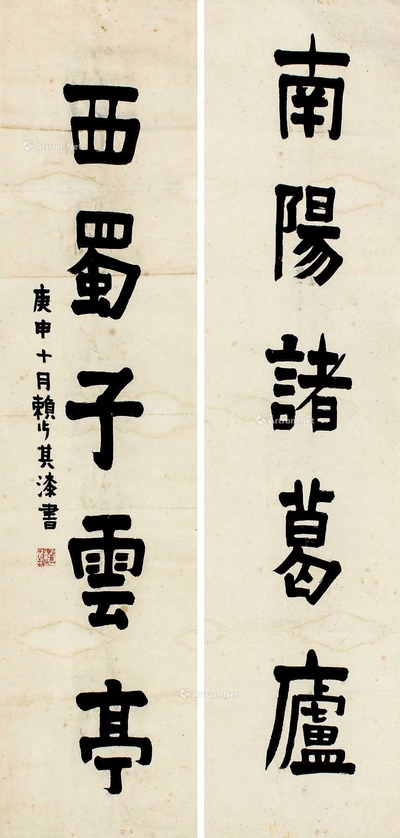 南陽諸葛廬
西蜀子雲亭
庚申十月賴少其漆書
Artron.Net
Artron.Net
Artron.Net